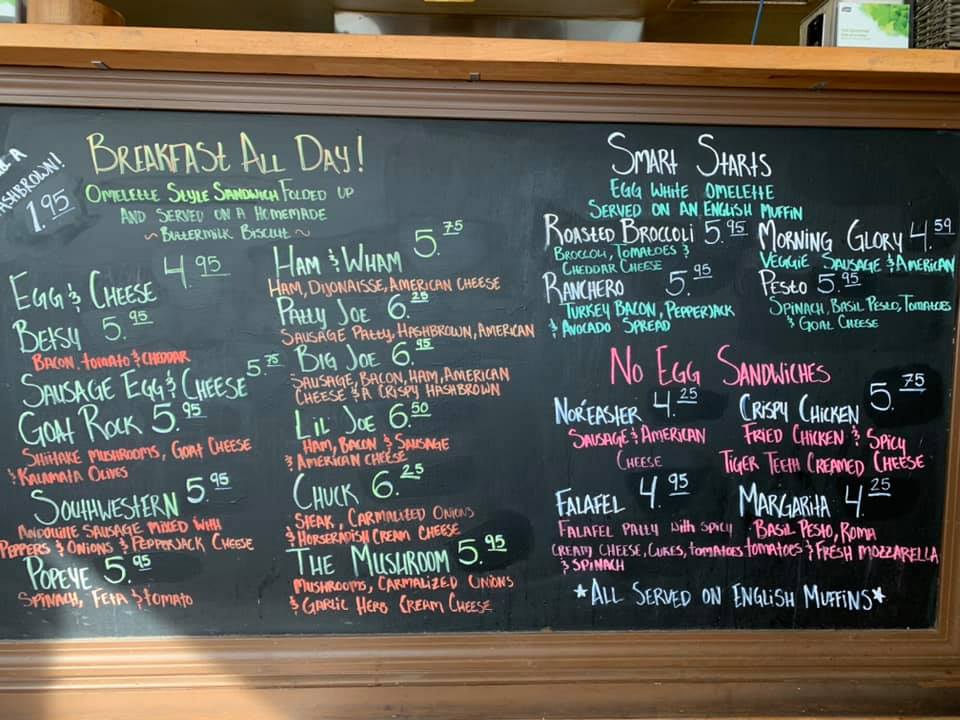 A
HASHBROWN!
1.95
BREAKFAST ALL DAY!
OMELETTE STYLE SANDWICH FOLDED UP
AND SERVED ON A HOMEMADE
~ BUTTERMILK BISCUIT ~
EGG & CHEESE 4.95
BETSY 5.95
BACON, TOMATO & CHEDDAR
SAUSAGE EGG & CHEESE 5.75
GOAT ROCK 5.95
SHIITAKE MUSHROOMS, GOAT CHEESE
& KALAMATA OLIVES
SOUTHWESTERN 5.95
ANDOUILLE SAUSAGE MIXED WITH
PEPPERS & ONIONS & PEPPERJACK CHEESE
POPEYE 5.95
SPINACH, FETA & TOMATO
HAM & WHAM 5.75
HAM, DIJONAISSE, AMERICAN CHEESE
PATTY JOE 6.25
SAUSAGE PATTY, HASHBROWN, AMERICAN
BIG JOE 6.95
SAUSAGE, BACON, HAM, AMERICAN
CHEESE & A CRISPY HASHBROWN
LIL JOE 6.50
HAM, BACON & SAUSAGE
& AMERICAN CHEESE
CHUCK 6.25
STEAK, CARMALIZED ONIONS
& HORSERADISH CREAM CHEESE
THE MUSHROOM 5.95
MUSHROOMS, CARMALIZED ONIONS
& GARLIC HERB CREAM CHEESE
SMART STARTS
EGG WHITE OMELETTE
SERVED ON AN ENGLISH MUFFIN
ROASTED BROCCOLI 5.95
BROCCOLI, TOMATOES &
CHEDDAR CHEESE
RANCHERO 5.95
TURKEY BACON, PEPPERJACK
& AVOCADO SPREAD
MORNING GLORY 4.59
VEGGIE SAUSAGE & AMERICAN
PESTO 5.95
SPINACH, BASIL PESTO, TOMATOES
& GOAT CHEESE
NO EGG SANDWICHES
NOR'EASHER 4.25
SAUSAGE & AMERICAN
CHEESE
CRISPY CHICKEN 5.75
FRIED CHICKEN & SPICY
TIGER TEETH CREAMED CHEESE
FALAFEL 4.95
FALAFEL PATTY WITH SPICY
CREAM CHEESE, CUKES, TOMATOES
& SPINACH
MARGARITA 4.25
BASIL PESTO, ROMA
TOMATOES & FRESH MOZZARELLA
*ALL SERVED ON ENGLISH MUFFINS*